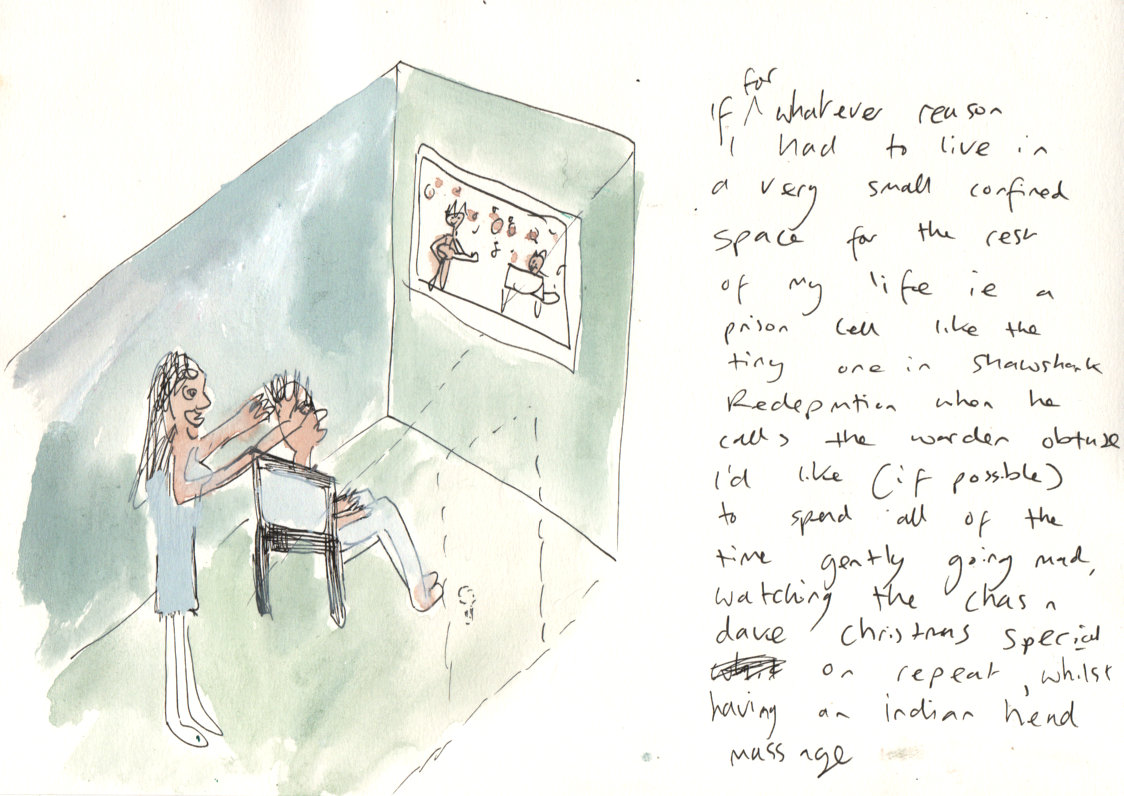 if for whatever reason
i had to live in
a very small confined
space for the rest
of my life ie a
prison cell like the
tiny one in Shawshank
Redepmtion when he
calls the warden obtuse
I'd like (if possible)
to spend all of the
time gently going mad,
watching the chas n
dave christmas special
on repeat, whilst
having an indian head
massage